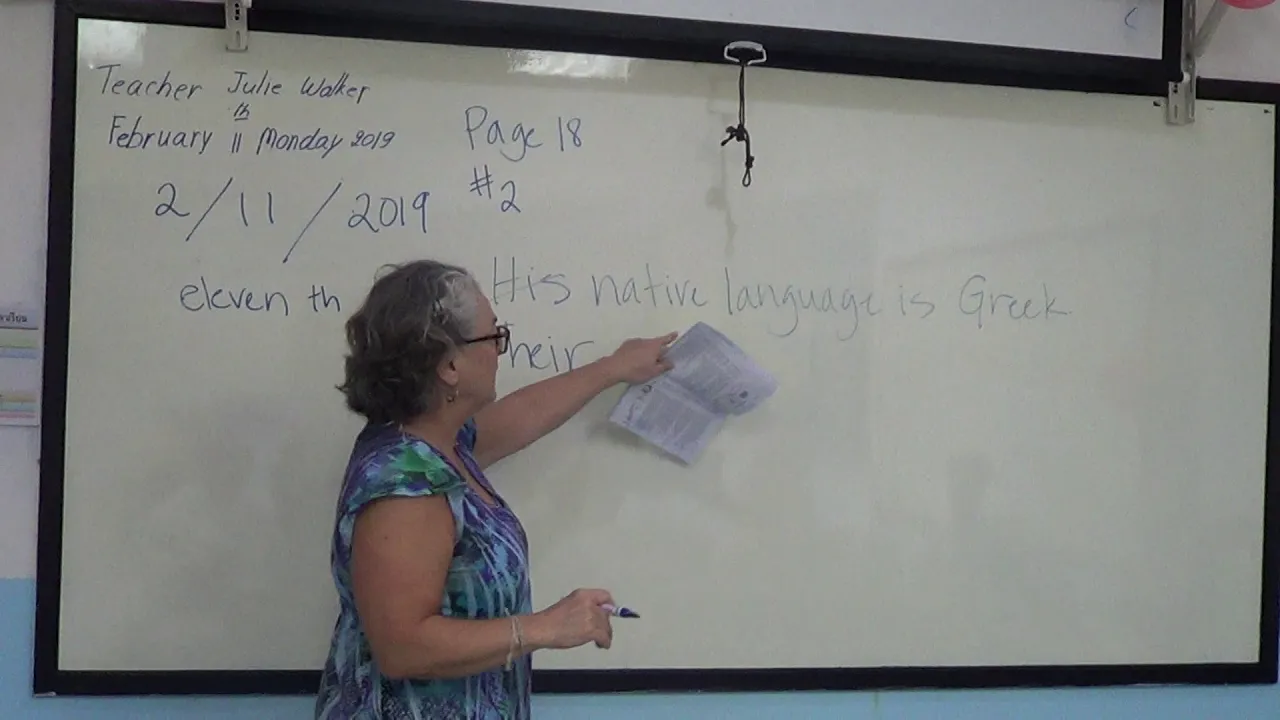 Teacher Julie Walker
February 11th Monday 2019
2/11/2019
eleven th
Page 18
#2
His native language is Greek
Their